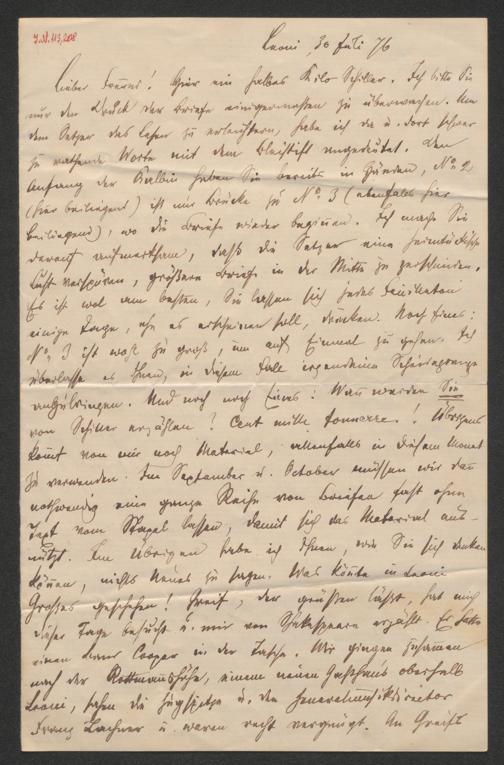 J.N. 113,208
Leoni, 30 Juli 76
Lieber Freund! Hier ein halbes Kilo Schiller. Ich bitte Sie
nur den Druck der Briefe einigermassen zu überwachen. Um
dem Setzer das Lesen zu erleichtern, habe ich da u. dort schwer
zu rathende Worte mit dem Bleistift angedeutet. Den
Anfang der haben Sie bereits in Händen, No. 2
(hier beiliegend) ist nur Brücke zu No. 3 (ebenfalls hier
beiliegend), wo die Briefe wieder beginnen. Ich mache Sie
darauf aufmerksam, daß die Setzer eine heimtückische
Lust verspüren, größere Briefe in der Mitte zu zerschneiden.
Es ist wol am besten, Sie lassen sich jedes Feuilleton
einige Tage, ehe es erscheinen soll, drucken. Noch Eines:
No. 3 ist wohl zu groß, um auf Einmal zu gehen. Ich
überlasse es Ihnen, in diesem Falle irgendeine
anzubringen. Und noch noch Eines: Wann werden Sie
von Schiller erzählen? Cent mille tonnerre! Übrigens
kömt von mir noch Material, allenfalls in diesem Monat
zu verwenden. Im September u. October müssen wir dan
nothwendig eine ganze Reihe von Briefen fast ohne
Text vom Stapel lassen, damit sich das Material aus-
nützt. Im Übrigen habe ich Ihnen, wie Sie sich denken
können, nichts Neues zu sagen. Was könte in Leoni
Großes geschehen! Greif, der grüßen läßt, hat mich
dieser Tage besucht u. mir von Shakespeare erzählt. Er hatte
einen Cooper in der Tasche. Wir gingen zusamen
nach der Rottmannshöhe, einem neuen Gasthaus oberhalb
Leoni, sahen die Zugspitze u. den Generalmusikdirector
Franz Lachner u. waren recht vergnügt. An Greif